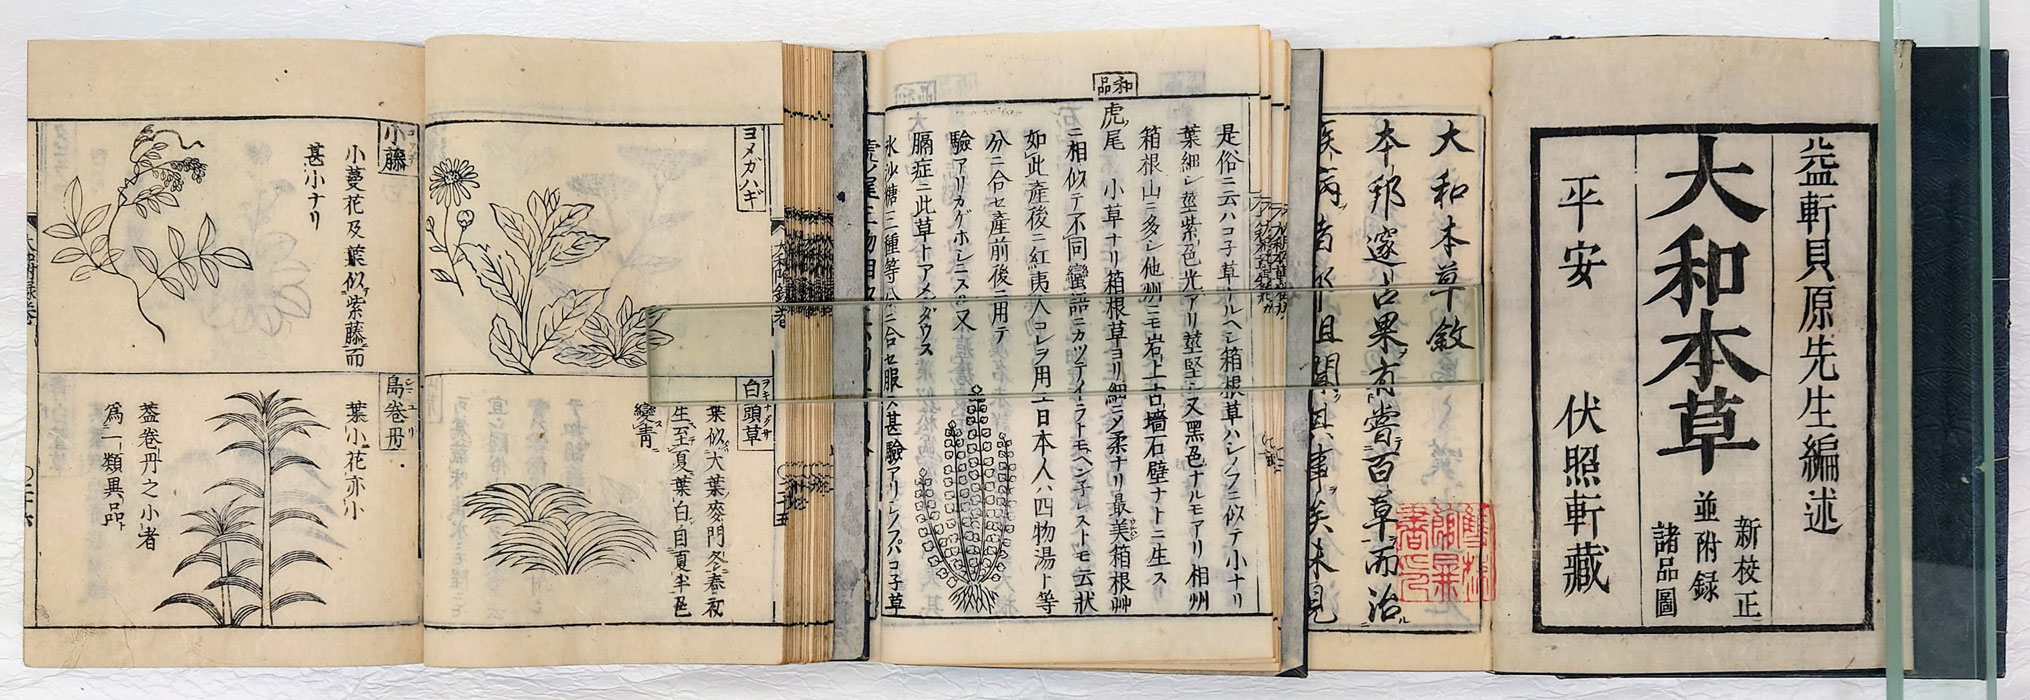 益軒貝原先生編述
大和本草
新校正
並附録
諸品圖
平安
伏照軒藏
大和本草敘
本邦邃古果有嘗百草而治
疾病者
且聞其事矣未見
和品
是俗ニ云ハコ子草ナルヘシ箱根草ハシノフニ似テ小ナリ
葉細シ莖紫色光アリ莖堅シ又黑色ナルモアリ相州
箱根山ニ多シ他州ニモ岩上古墻石壁ナトニ生ス
虎尾 小草ナリ箱根草ヨリ細ニ〆柔ナリ最美箱根艸
ニ相似テ不同蠻語ニカツテイイラトモヘンデレストモ云狀
如此產後ニ紅夷人コレヲ用ユ日本人ハ四物湯ト等
分ニ合セ產前後ニ用テ
驗アリカゲホシニスヘシ又
膈症ニ此草トアメダウス
氷沙糖三種等分ニ合セ服ス甚驗アリシノブハコ子草
ヨメガハギ
白頭草
ヲキナグサ
葉似大葉麥門冬春初
生至夏葉白自夏半邑
變青
小藤
小蔓花及葉似紫藤而
甚小ナリ
島卷丹
葉小花亦小
蓋卷丹之小者
爲一類異品